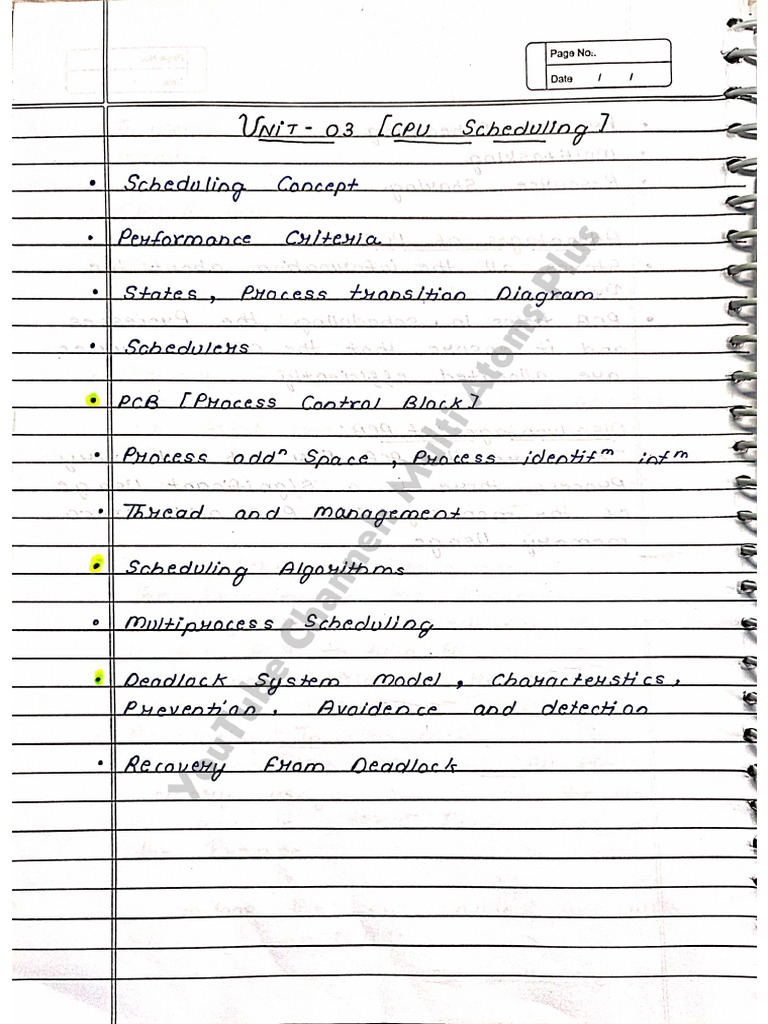 Page No:.
Date / /
UNIT - 03 [CPU Scheduling]
• Scheduling Concept
• Performance Criteria
• States, Process transition Diagram
• Schedulers
• PCB [Process Control Block]
• Process addⁿ Space, Process identifᵐ infᵐ
• Thread and management
• Scheduling Algorithms
• Multiprocess Scheduling
• Deadlock System Model, Characteristics,
Prevention, Avoidence and detection
• Recovery from Deadlock
YouTube Channel: Multi Atoms Plus